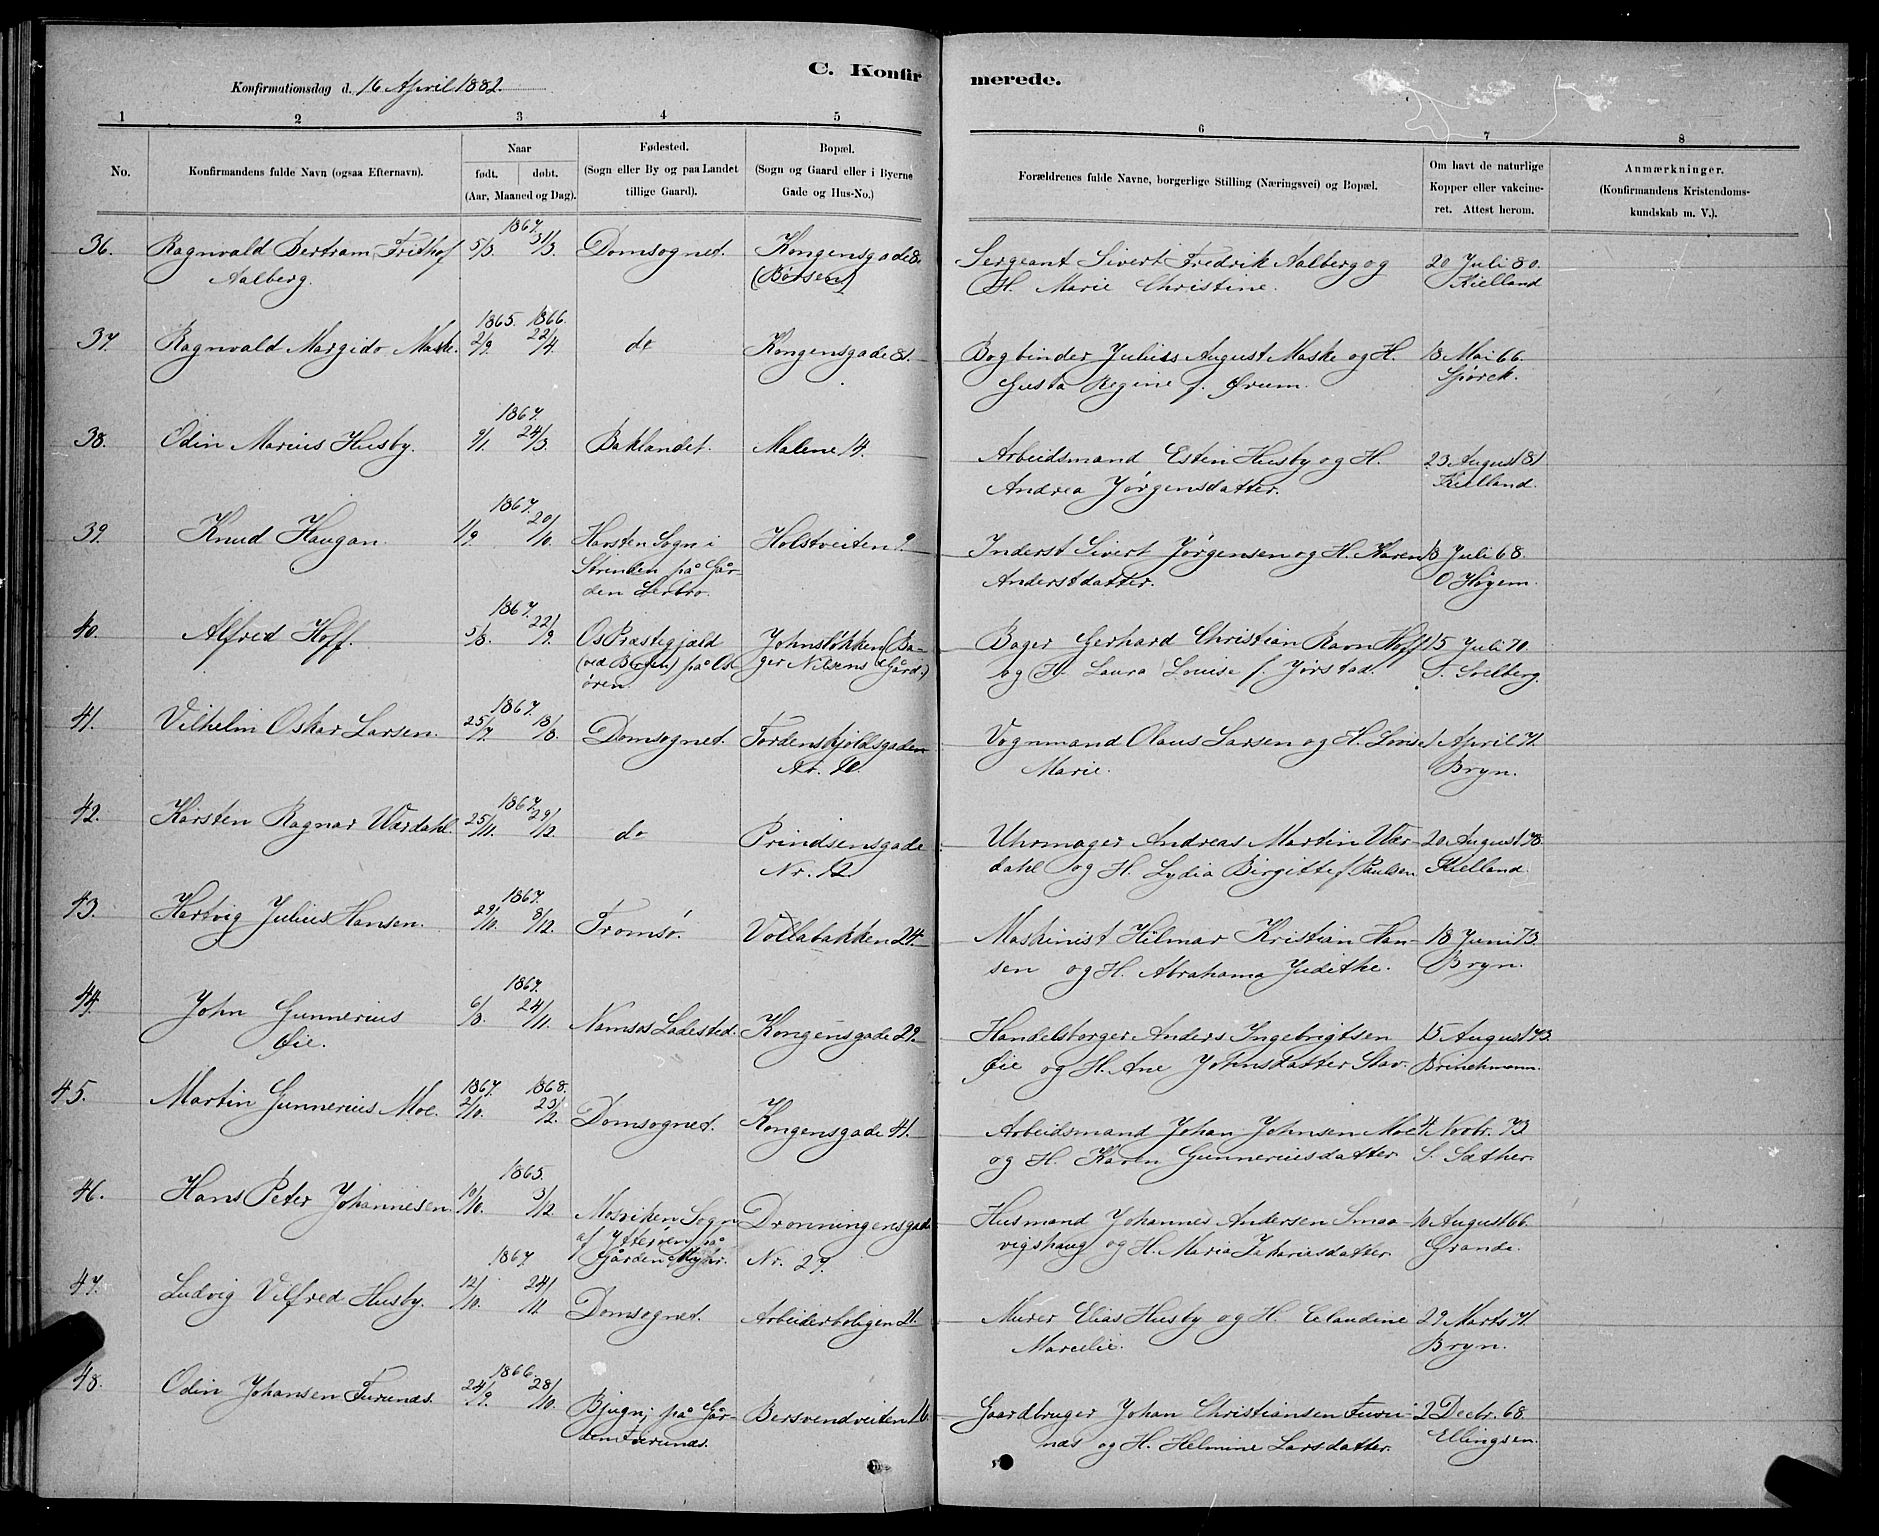 C. Konfirmerede.
Konfirmationsdag d. 16 April 1882.
1 2 3 4 5 6 7 8
No.
Konfirmandens fulde Navn (ogsaa Efternavn).
Naar
født. døbt.
(Aar, Maaned og Dag).
Fødested.
(Sogn eller By og paa Landet
tillige Gaard).
Bopæl.
(Sogn og Gaard eller i Byerne
Gade og Hus-No.)
Forældrenes fulde Navne, borgerlige Stilling (Næringsvei) og Bopæl.
Om havt de naturlige
Kopper eller vakcine-
ret. Attest herom.
Anmærkninger.
(Konfirmandens Kristendoms-
kundskab m. V.).
1867.
36. Ragnvald Bertram Frithof 5/3. 31/3. Domsognet. Kongensgade 8. Sergeant Sivert Fredrik Aalberg og 20 Juli 80.
Aalberg. (Børsen) H. Marie Christine. Kielland
1865. 1866.
37. Ragnvald Margido Maske. 2/9. 22/4. do Kongensgade 81. Bogbinder Julius August Maske og H. 18 Mai 66.
Gusta Regine f. Ørum. Spørck.
1867.
38. Odin Marius Husby. 9/1. 24/3. Baklandet. Malene 14. Arbeidsmand Esten Husby og H. 23 August 81
Andrea Jørgensdatter. Kielland.
1867.
39. Knud Haugan. 1/9. 20/10. Havsten Sogn i Holstveiten 9. Inderst Sivert Jørgensen og H. Karen 18 Juli 68.
Strinden på Går- Anderstdatter. O Høyem.
den Lerbro.
1867.
40. Alfred Hoff. 5/8. 22/9. Os Præstegjæld Johnsløkken (Ba- Bager Gerhard Christian Ravn Hoff 15 Juli 70.
(ved Bergen) på Os- ger Nilsens Gård.) og H. Laura Louise f. Jørstad. S. Solberg.
øren.
1867.
41. Vilhelm Oskar Larsen. 25/7. 18/8. Domsognet. Tordenskjoldsgaden Vognmand Olaus Larsen og H. Lovise 1 April 71.
Nr. 10. Marie. Bryn.
1867.
42. Karsten Ragnar Værdahl. 25/11. 29/12. do Prindsensgade Uhrmager Andreas Martin Vær- 20 August 78.
Nr. 12. dahl og H. Lydia Birgitte f. Paulsen. Kielland.
1867.
43. Hartvig Julius Hansen. 29/10. 8/12. Tromsø. Vollabakken 24. Maskinist Hilmar Kristian Han- 18 Juni 73.
sen og H. Abrahama Judithe. Bryn.
1867.
44. John Gunnerius 6/8. 24/11. Namsos Ladested. Kongensgade 29. Handelsborger Anders Ingebrigtsen 15 August 73.
Øie. Øie og H. Ane Johnsdatter Stav. Brinchmann.
1867. 1868.
45. Martin Gunnerius Moe. 2/10. 23/2. Domsognet. Kongensgade 41. Arbeidsmand Johan Johnsen Moe 4 Novbr. 73
og H. Karen Gunneriusdatter. S. Sæther.
1865.
46. Hans Peter Johannesen. 10/10. 3/12. Mosviken Sogn Dronningensgade Husmand Johannes Andersen Smaa- 10 August 66.
af Ytterøen på vigshaug og H. Maria Zakariasdatter. Grande.
Gården Myhr. Nr. 27.
1867.
47. Ludvig Vilfred Husby. 12/10. 24/11. Domsognet. Arbeiderboligen 21. Murer Elias Husby og H. Claudine 29 Marts 71.
Marcelie. Bryn.
1866.
48. Odin Johansen Furunæs. 24/9. 28/10. Bjugn, på Går- Bersvendveiten 16. Gaardbruger Johan Christiansen Furu- 2 Decbr. 68.
den Furunæs. næs og H. Helmine Larsdatter. Ellingsen.